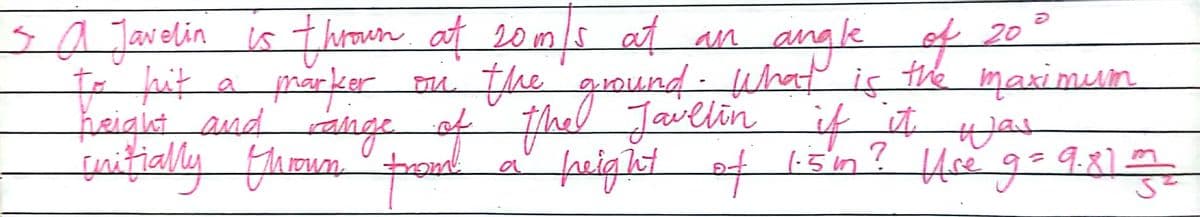 5 A Javelin is thrown at 20 m/s at an angle of 20°
to hit a marker on the ground. What is the maximum
height and range of the Javelin if it was
initially thrown from a height of 1.5m? Use g = 9.81 m/s²